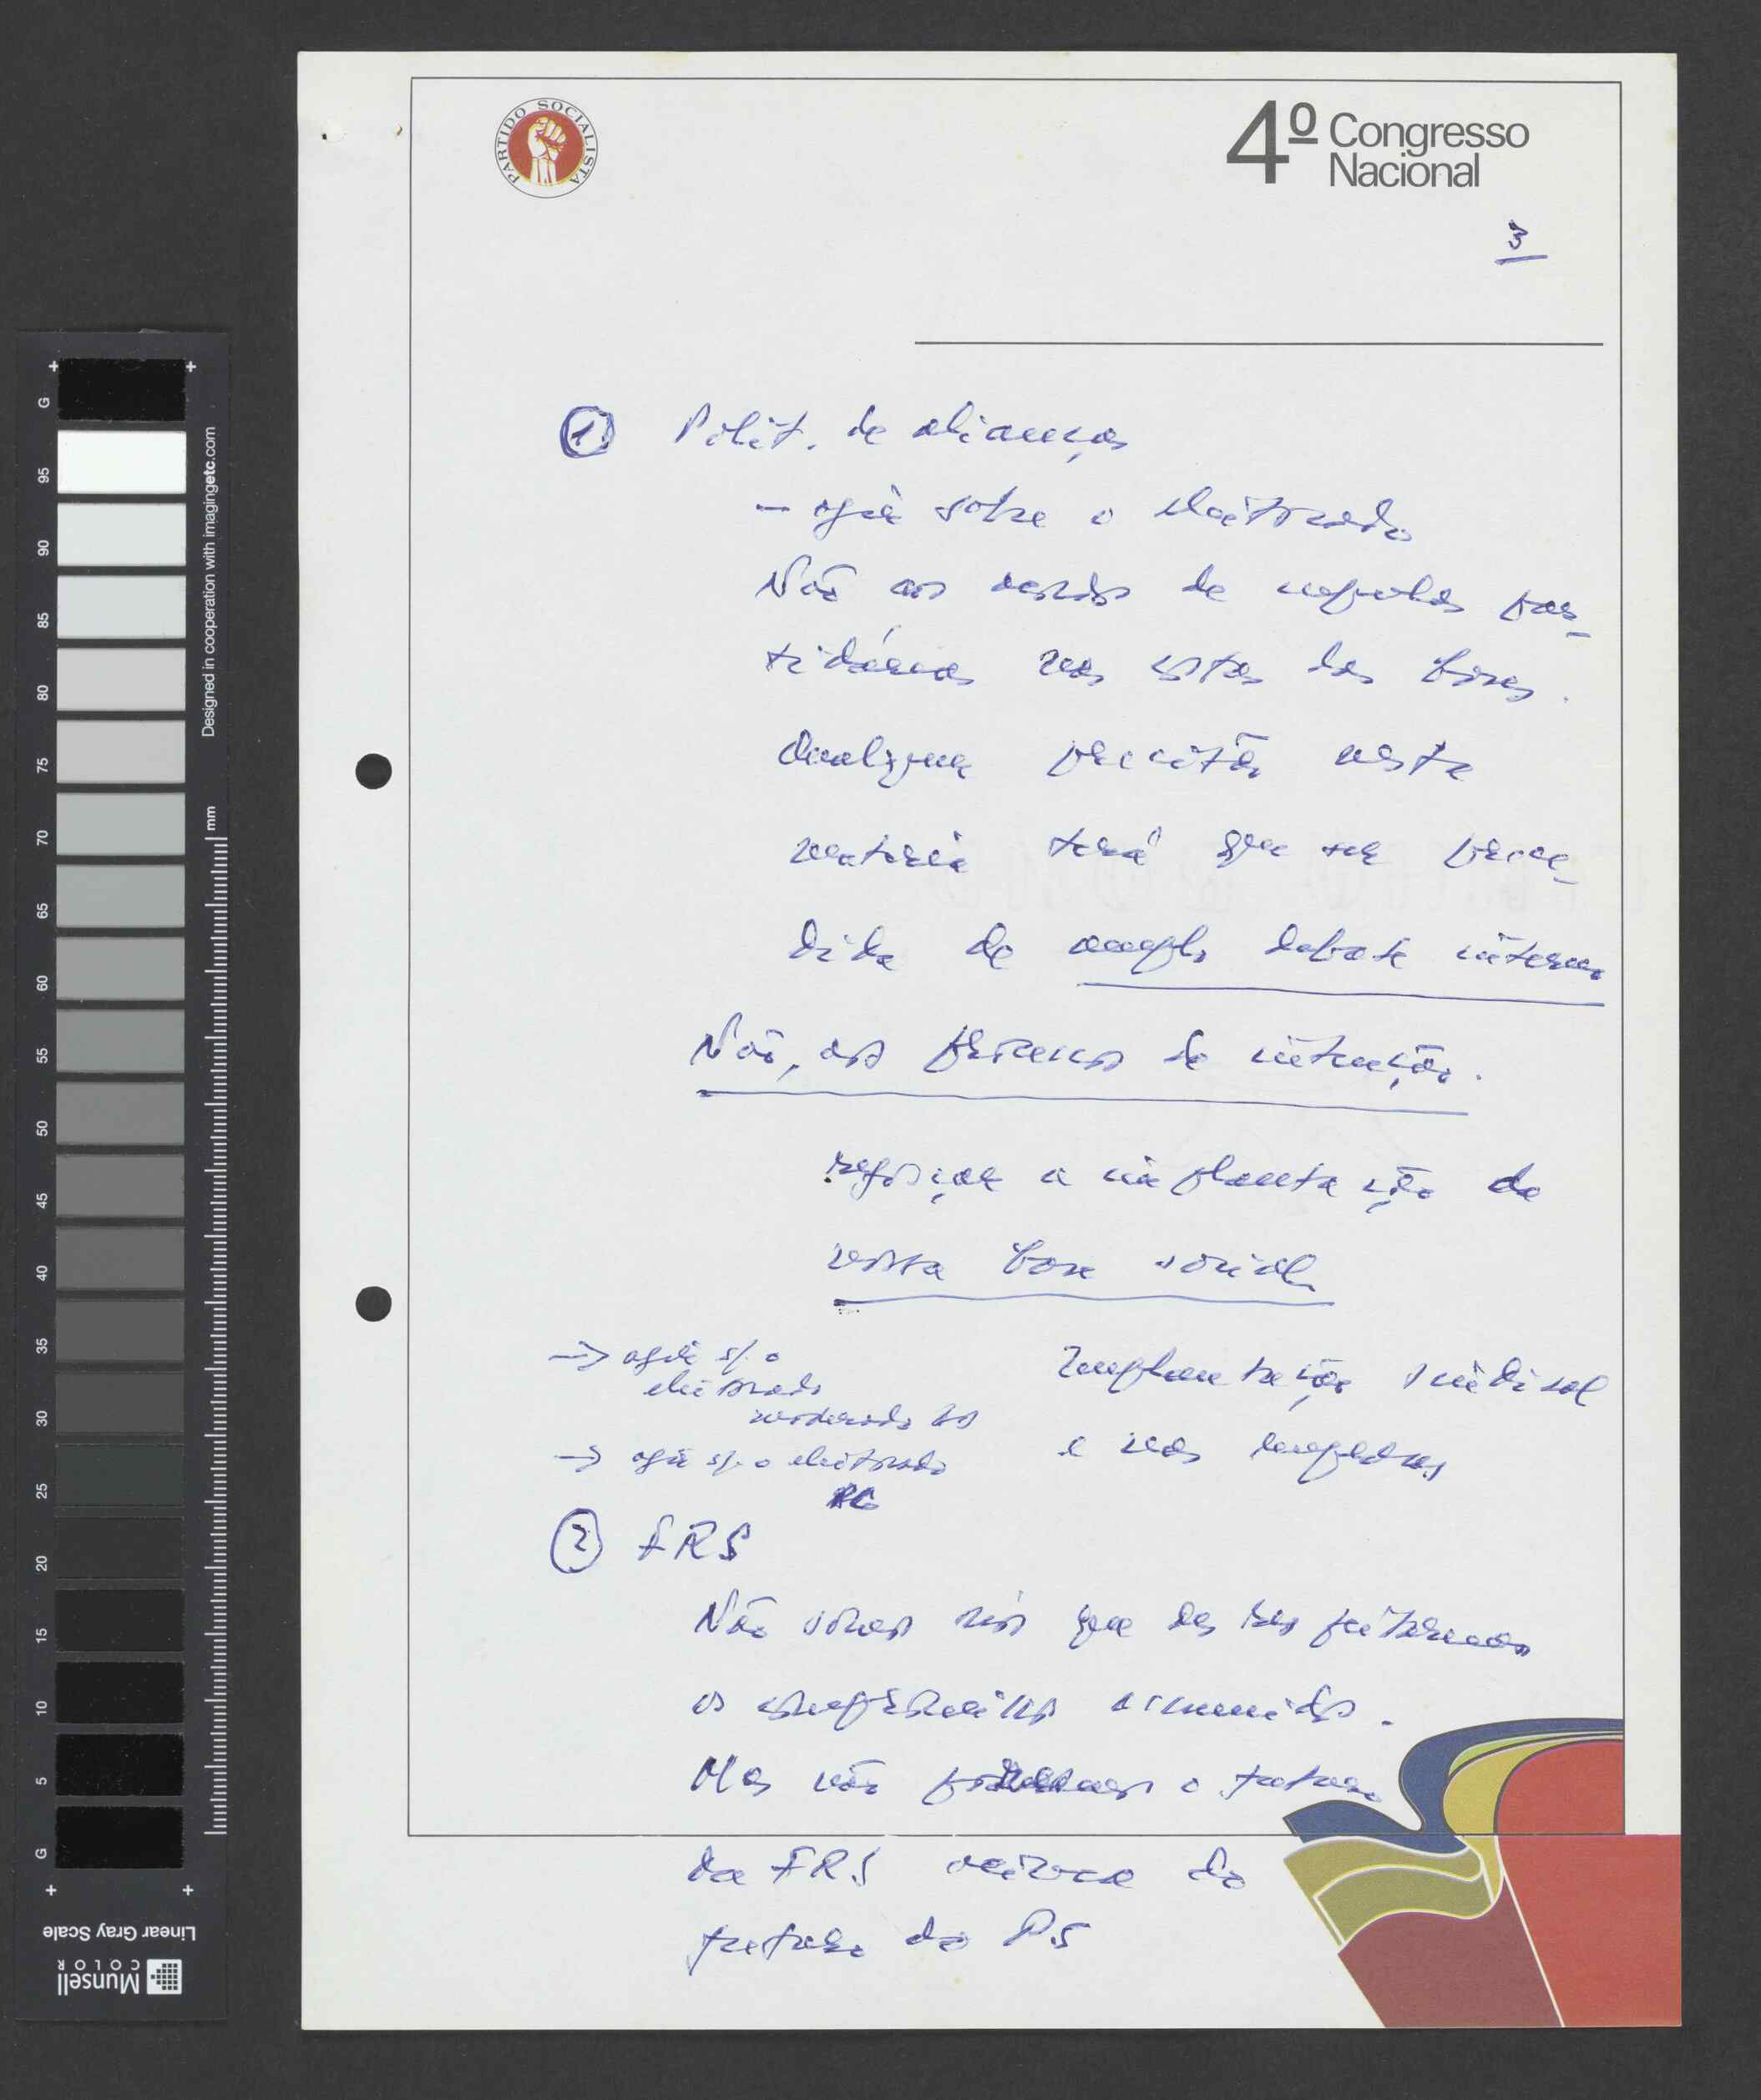 PARTIDO SOCIALISTA
4º Congresso
Nacional
3
1) Polit. de alianças
– agir sobre o eleitorado
Não aos acordos de cupulas par-
tidárias nas costas das bases.
Qualquer decisão nesta
materia terá que ser prece-
dida de amplo debate interno
Não, aos processos de intenção.
reforçar a implantação da
nossa base social
Implantação sindical
e nas empresas
→ agir s/. o
eleitorado
moderado
→ agir s/. o eleitorado
PC
2) FRS
Não somos nós que
os compromissos assumidos.
Mas não o futuro
da FRS acima do
futuro do PS
G
95
90
85
80
75
70
65
60
55
50
45
40
35
30
25
20
15
10
5
G
mm
Designed in cooperation with imagingetc.com
Linear Gray Scale
Munsell
COLOR